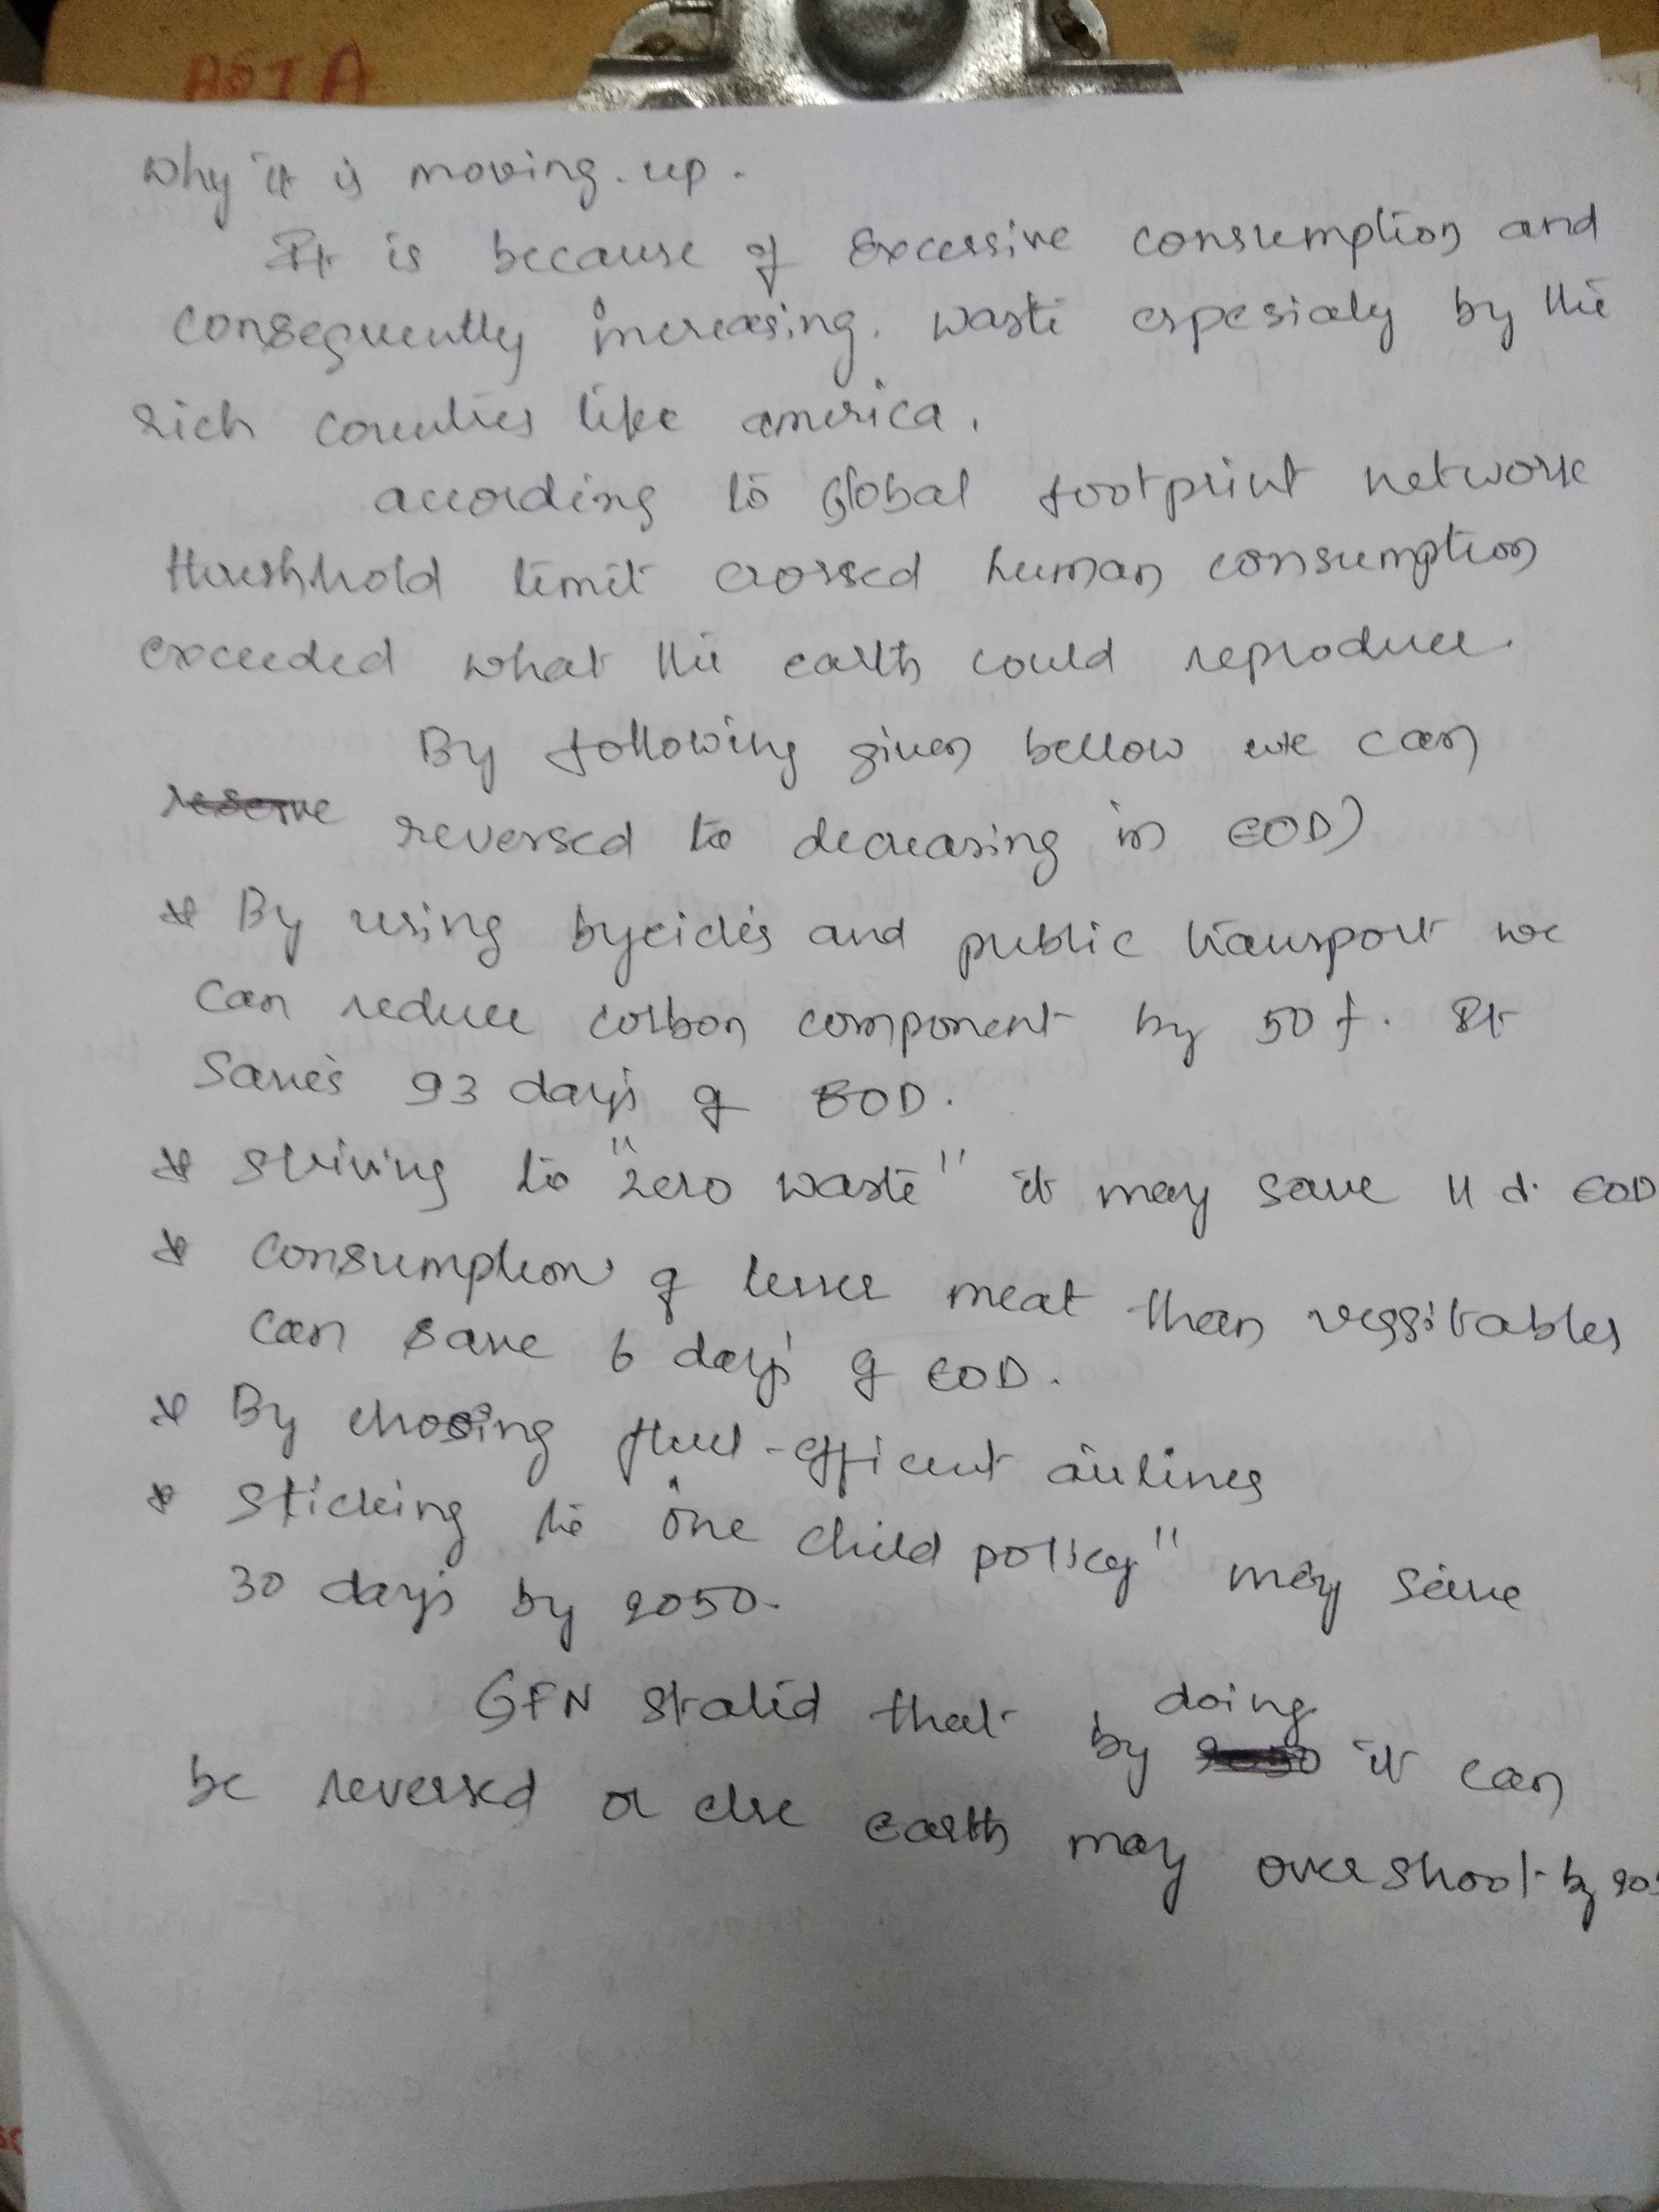 ASIA
Why it is moving. up.
It is because of Excessive consumption and
consequently increasing. waste espesialy by the
rich countries like america.
according to Global footprint network
thrushhold limit crossed human consumption
exceeded what the earth could reproduce.
By following given bellow we can
reserve reversed to decreasing in EOD)
* By using bycicles and public transport we
can reduce corbon component by 50 %. It
Saves 93 days of EOD.
* Striving to "zero waste" it may save 11 d. EOD
* Consumption of lesser meat than vegsitables
can save 6 days of EOD.
* By choosing fluel-efficient airlines
* Sticking to "one child policy" may save
30 days by 2050.
doing
GFN statid that by 2050 it can
be reversed or else earth may over shoot by 205